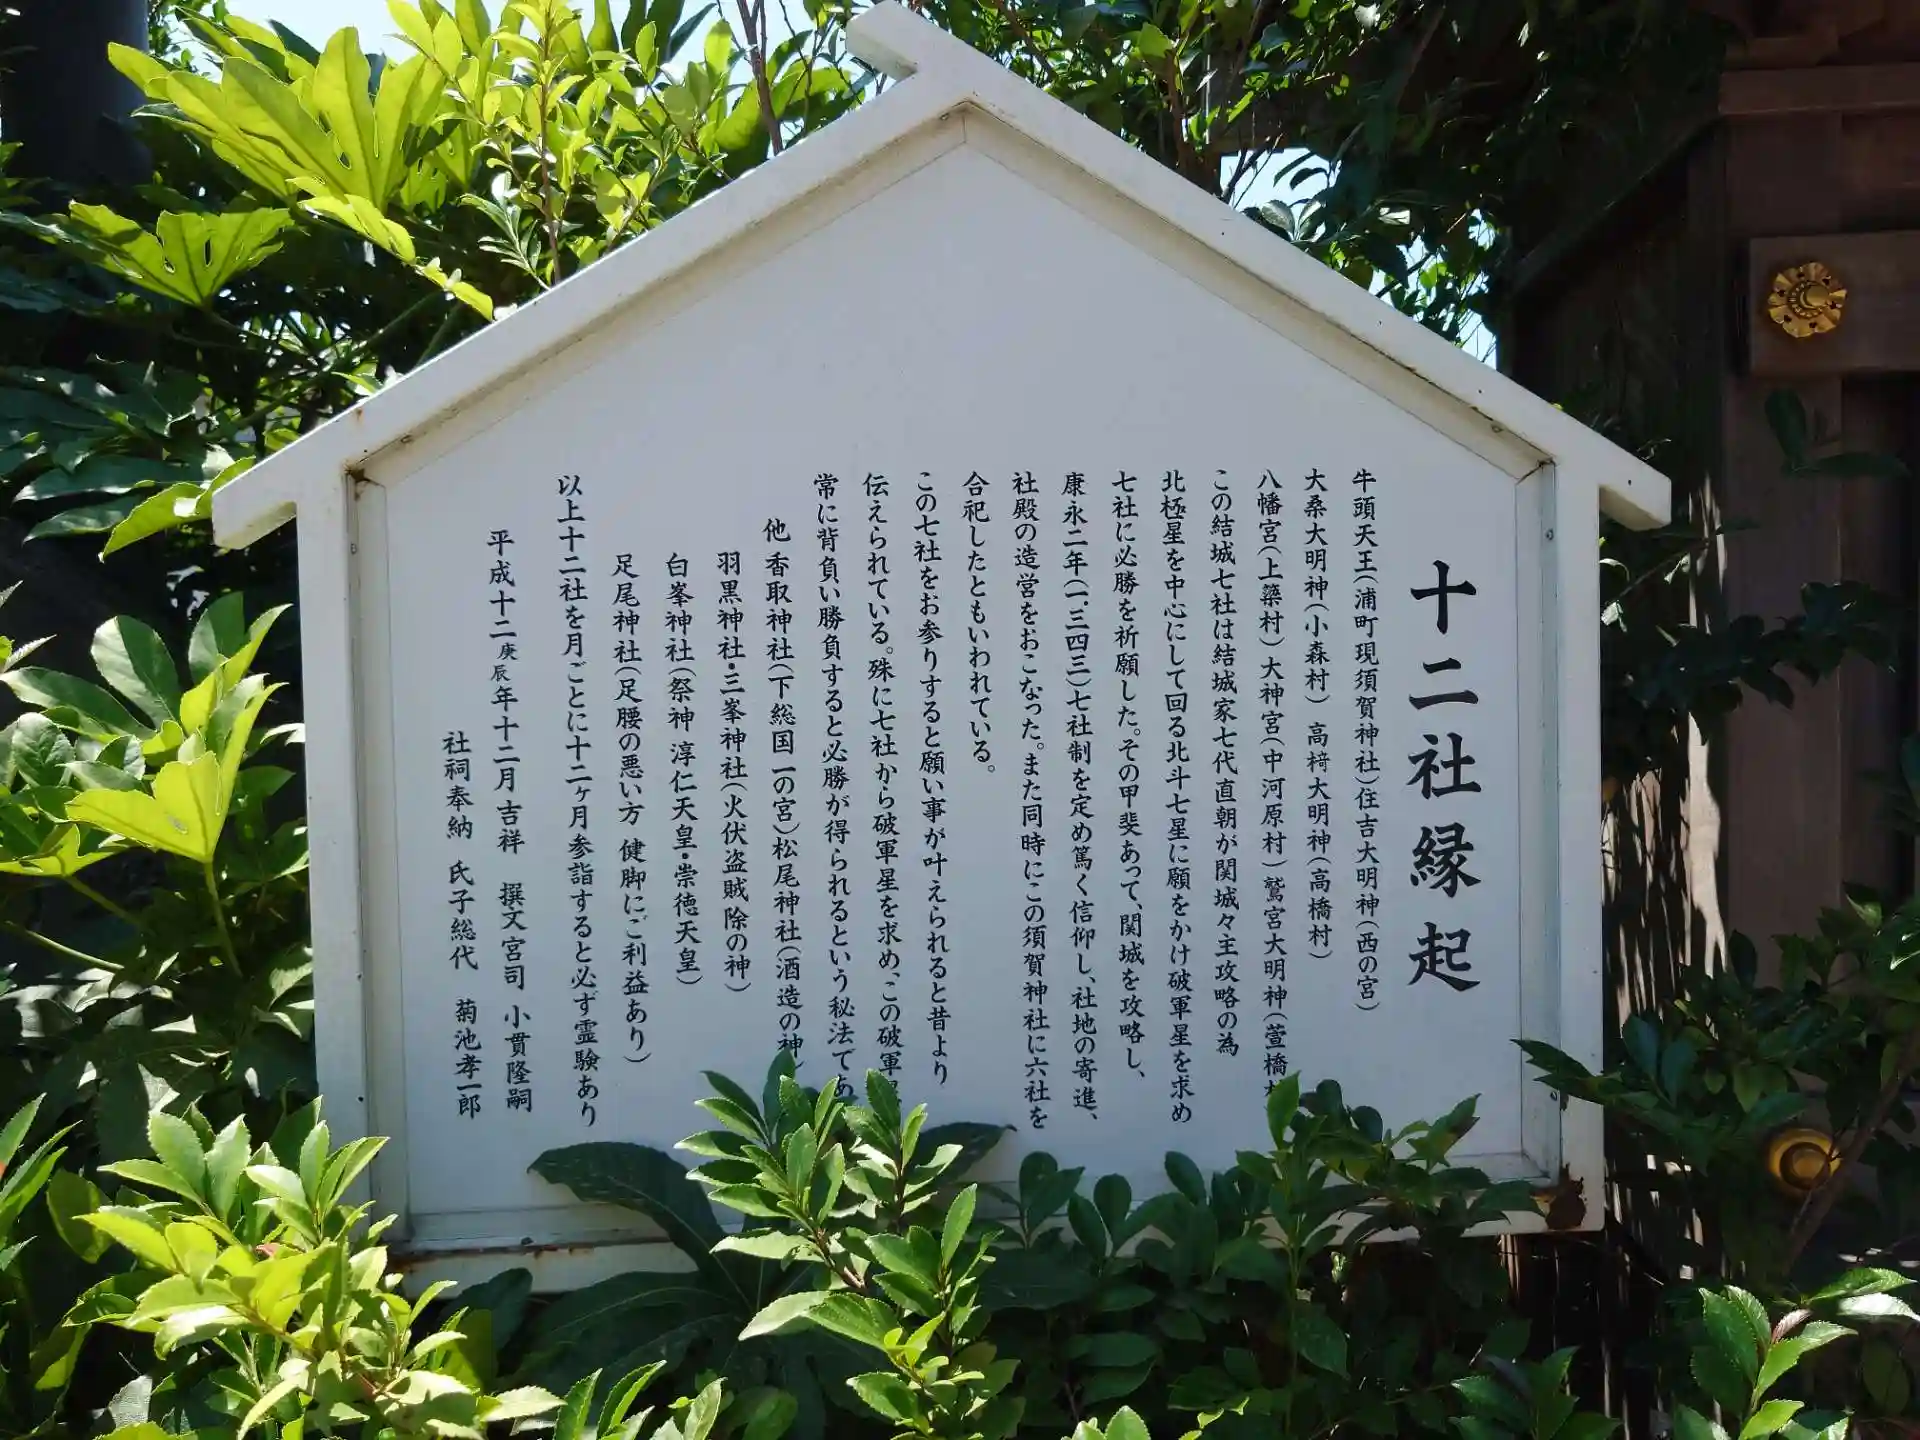 十二社縁起
牛頭天王(浦町現須賀神社)住吉大明神(西の宮)
大桑大明神(小森村) 高椅大明神(高橋村)
八幡宮(上簗村) 大神宮(中河原村) 鷲宮大明神(萱橋
この結城七社は結城家七代直朝が関城々主攻略の為
北極星を中心にして回る北斗七星に願をかけ破軍星を求め
七社に必勝を祈願した。その甲斐あって、関城を攻略し、
康永二年(一、三四三)七社制を定め篤く信仰し、社地の寄進、
社殿の造営をおこなった。また同時にこの須賀神社に六社を
合祀したともいわれている。
この七社をお参りすると願い事が叶えられると昔より
伝えられている。殊に七社から破軍星を求め、この破軍
常に背負い勝負すると必勝が得られるという秘法であ
他 香取神社(下総国一の宮)松尾神社(酒造の神)
羽黒神社・三峯神社(火伏盗賊除の神)
白峯神社(祭神 淳仁天皇・崇徳天皇)
足尾神社(足腰の悪い方 健脚にご利益あり)
以上十二社を月ごとに十二ヶ月参詣すると必ず霊験あり
平成十二庚辰年十二月吉祥 撰文宮司 小貫隆嗣
社祠奉納 氏子総代 菊池孝一郎